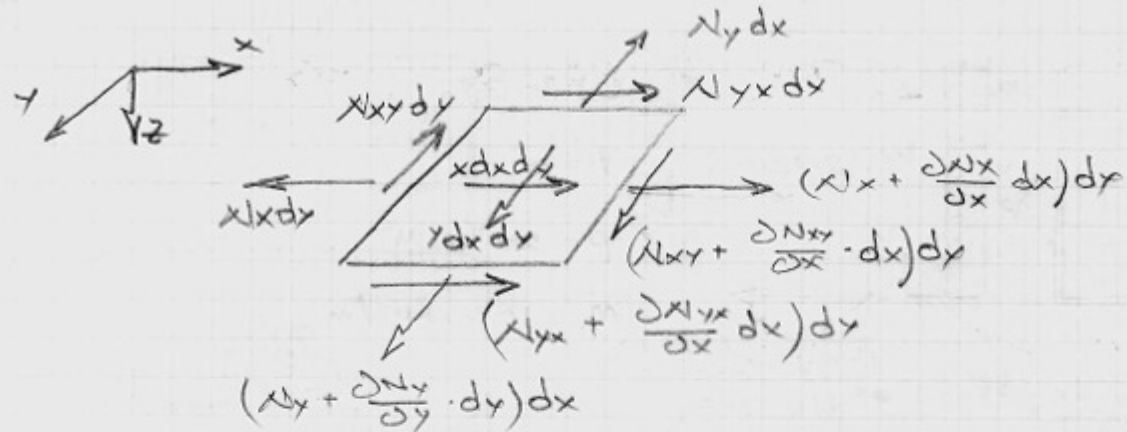 x
y
z
Ny dx
Nyx dx
Nxy dy
Nx dy
x dx dy
y dx dy
(Nx + ∂Nx/∂x dx) dy
(Nxy + ∂Nxy/∂x · dx) dy
(Nyx + ∂Nyx/∂x dx) dy
(Ny + ∂Ny/∂y · dy) dx